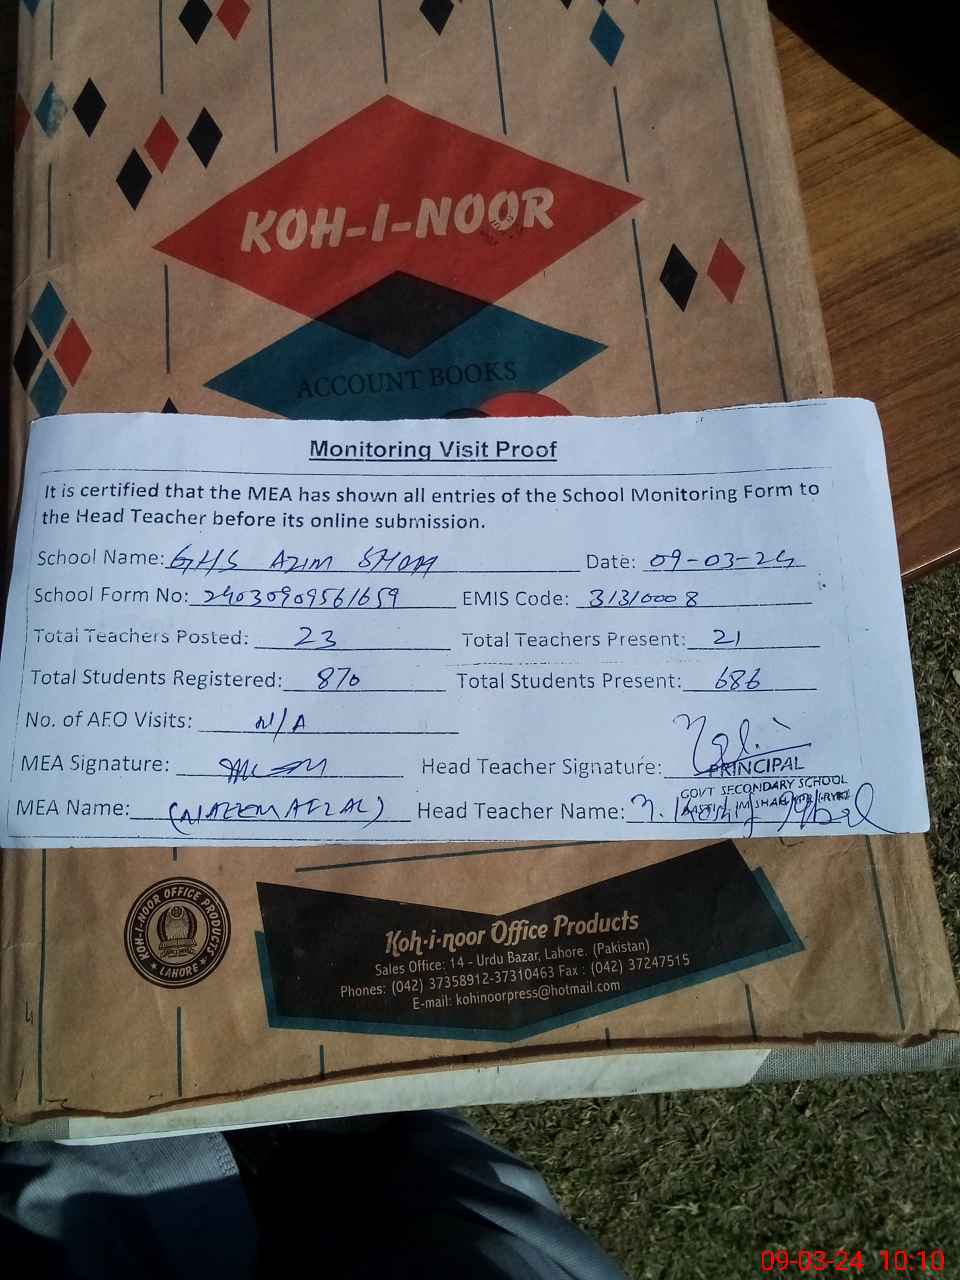 KOH-I-NOOR
ACCOUNT BOOKS
Monitoring Visit Proof
It is certified that the MEA has shown all entries of the School Monitoring Form to
the Head Teacher before its online submission.
School Name: GHS AZIM SHAH Date: 09-03-24
School Form No: 24030909561659 EMIS Code: 31310008
Total Teachers Posted: 23 Total Teachers Present: 21
Total Students Registered: 870 Total Students Present: 686
No. of AEO Visits: N/A
MEA Signature: Head Teacher Signature:
PRINCIPAL
GOVT SECONDARY SCHOOL
MEA Name: (NAEEM AFZAL) Head Teacher Name:
KOH-I-NOOR OFFICE PRODUCTS
LAHORE
Koh-i-noor Office Products
Sales Office: 14 - Urdu Bazar, Lahore. (Pakistan)
Phones: (042) 37358912-37310463 Fax : (042) 37247515
E-mail: kohinoorpress@hotmail.com
09-03-24 10:10